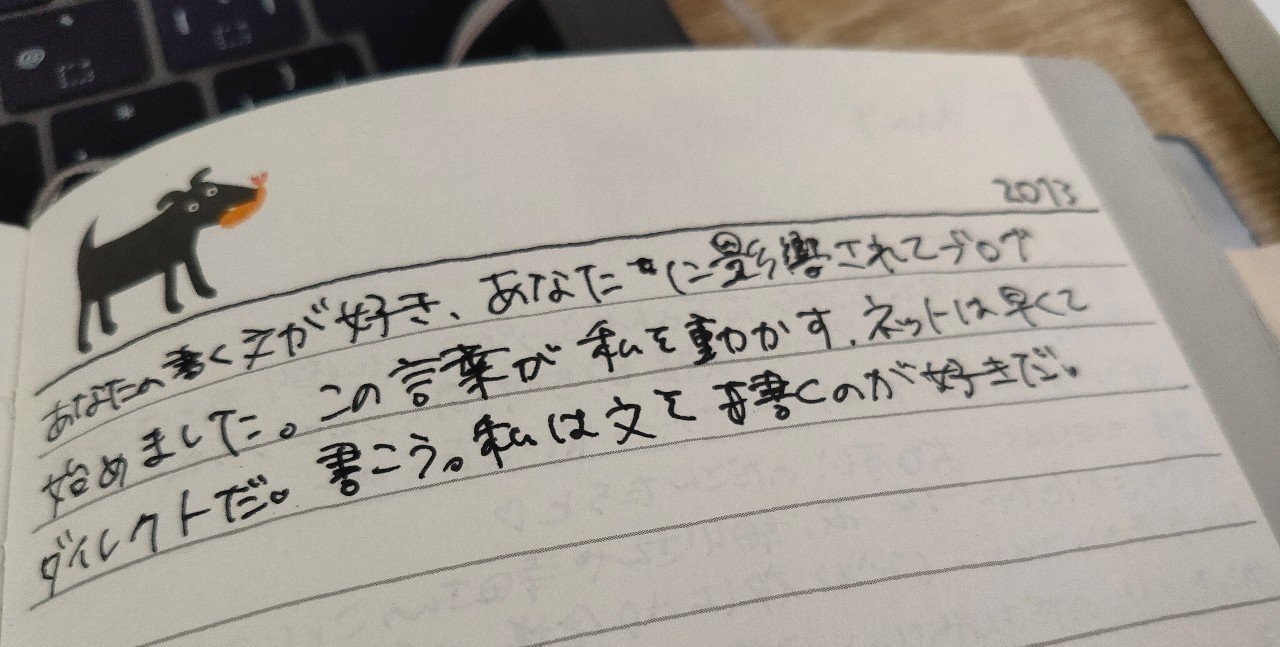 2013
あなたの書く文が好き、あなたに影響されてブログ
始めました。この言葉が私を動かす。ネットは早くて
ダイレクトだ。書こう。私は文を書くのが好きだ。